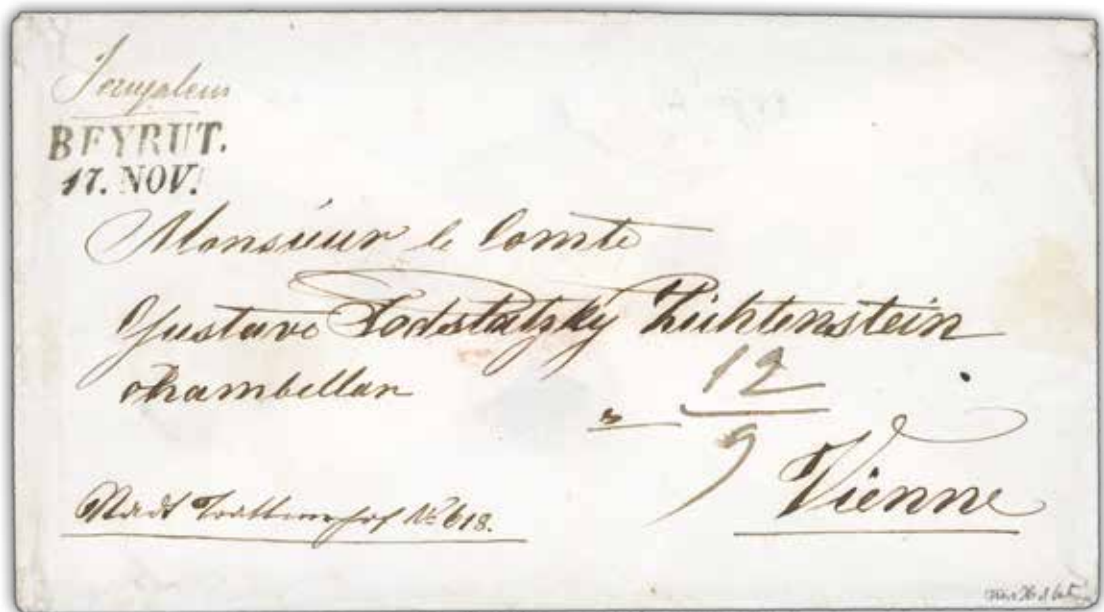 Jerusalem
BEYRUT.
17. NOV.
Monsieur le Comte
Gustave Podstatzky Lichtenstein
chambellan
12
9
Vienne
Stadt Trattnerhof № 618.